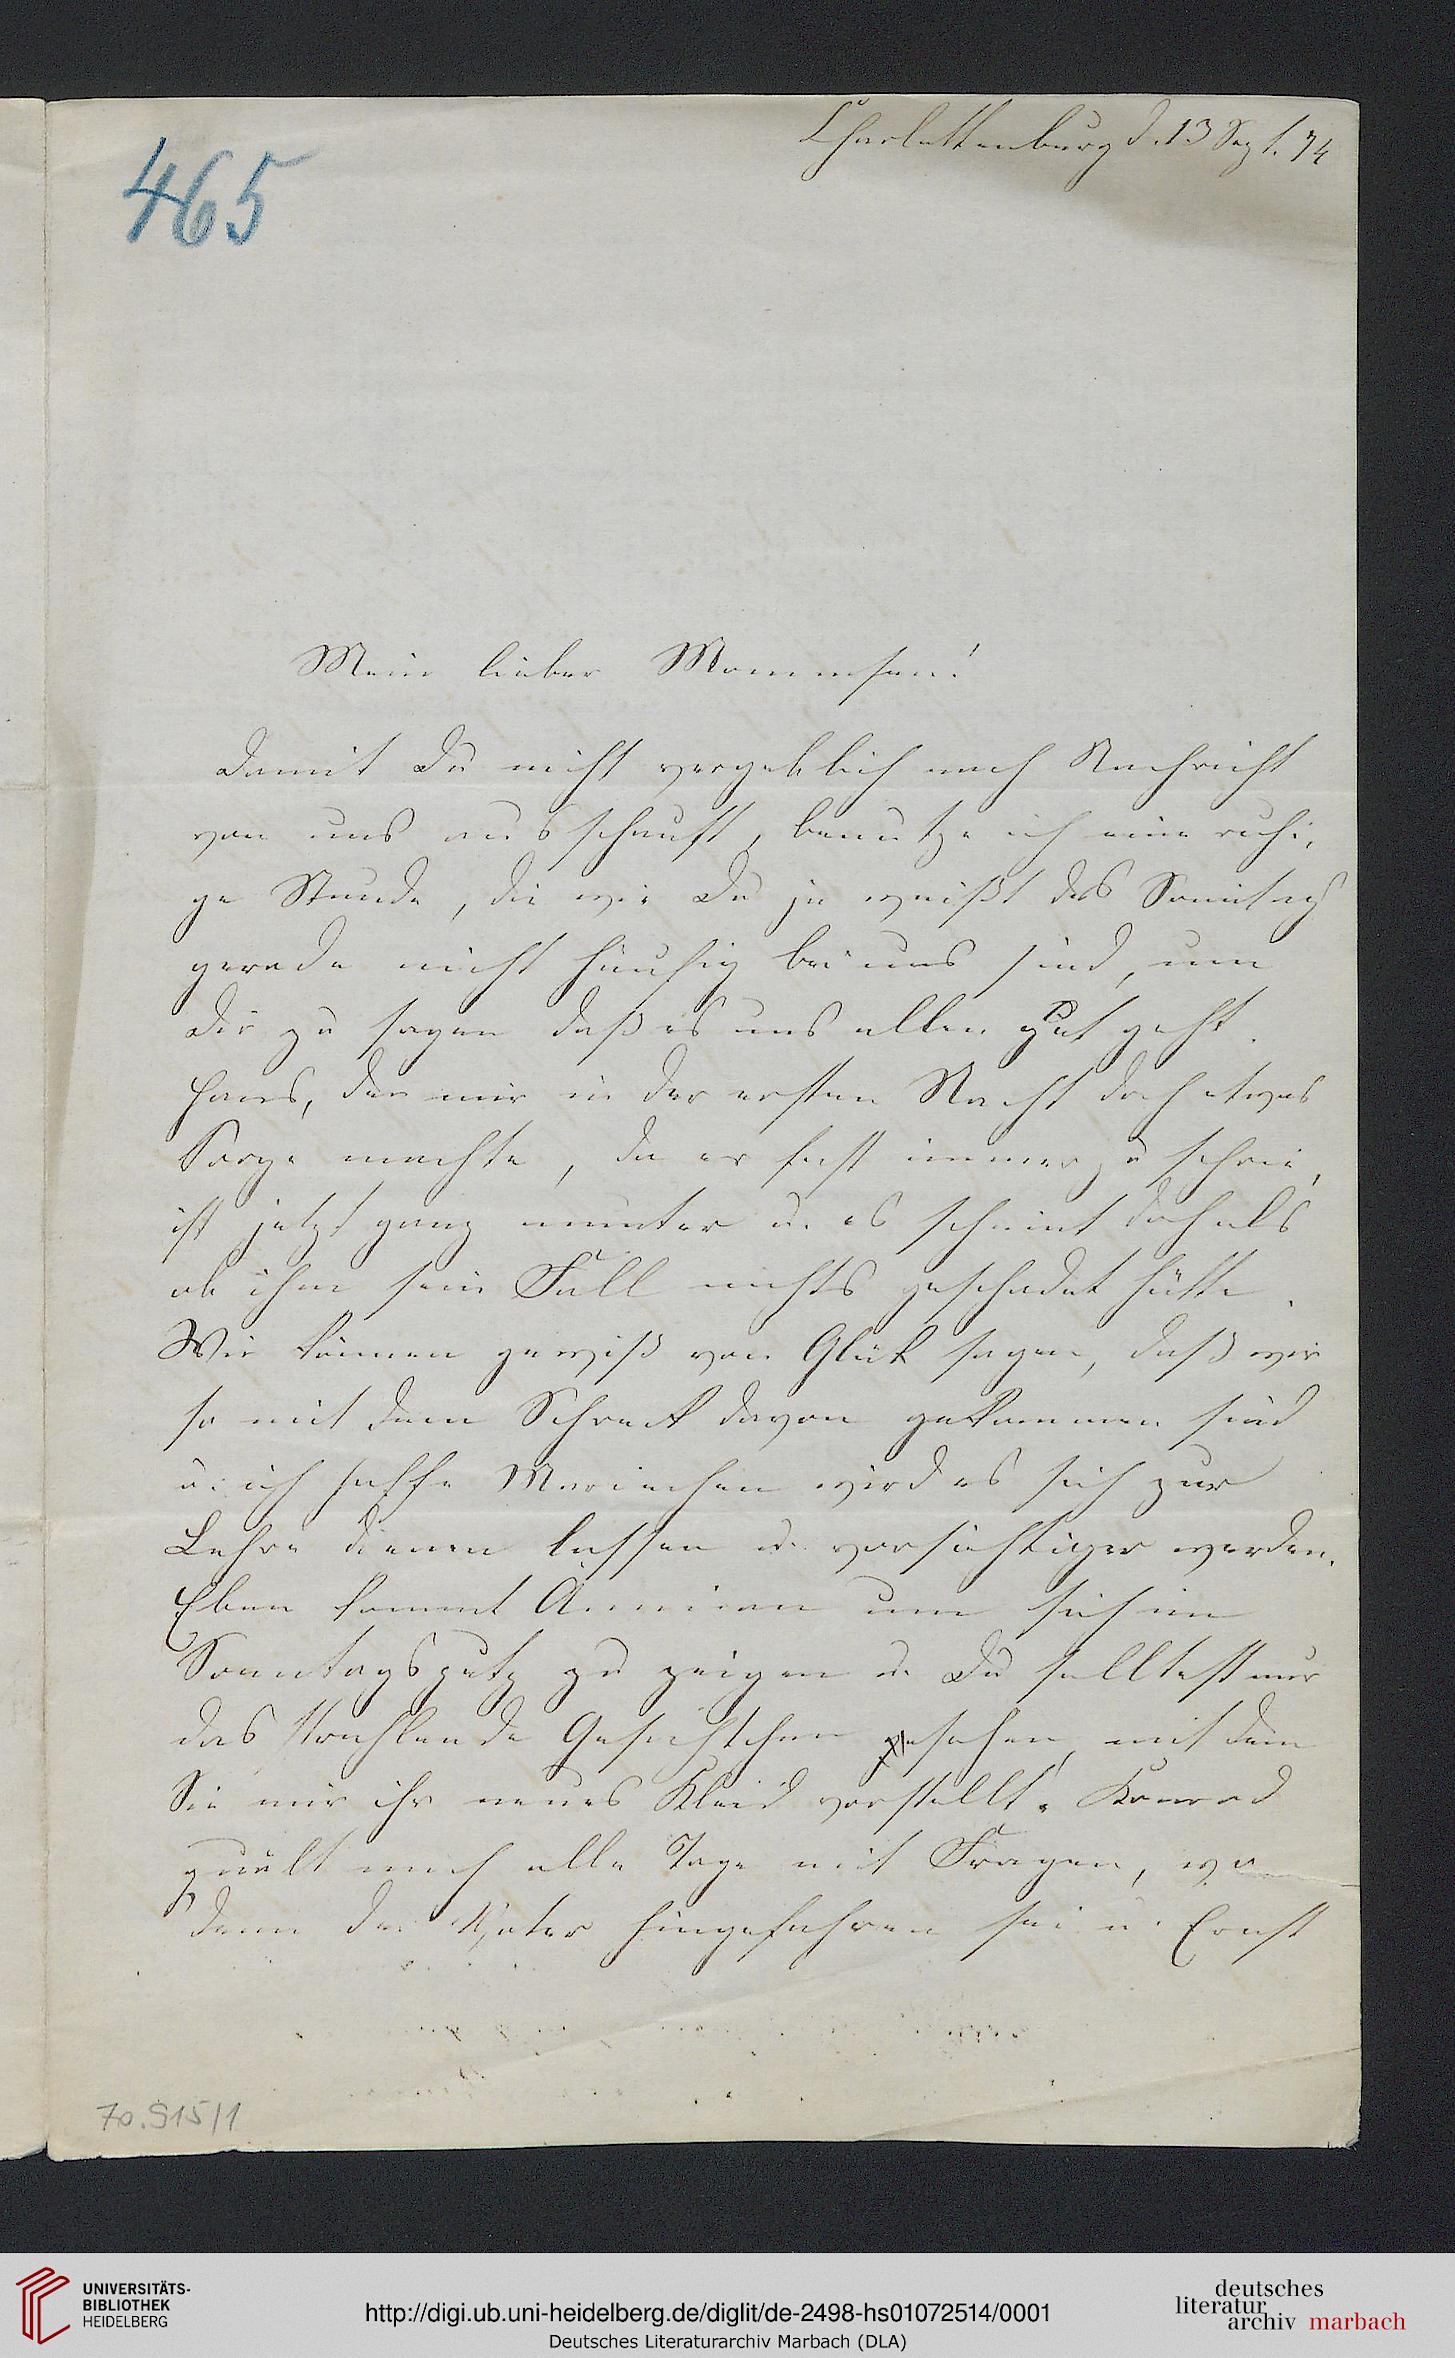 465
Charlottenburg d. 13 Sept. 74
Mein lieber Mommsen!
Damit Du nicht vergeblich nach Nachricht
von uns ausschaust, benutze ich eine ruhi-
ge Stunde, die wie Du ja weißt des Sonntags
gerade nicht häufig bei uns sind, um
Dir zu sagen daß es uns allen gut geht.
Hans, der mir in der ersten Nacht doch etwas
Sorge machte, da er fast immerzu schrie,
ist jetzt ganz munter u. es scheint doch als
ob ihm sein Fall nichts geschadet hätte.
Wir können gewiß von Glük sagen, daß wir
so mit dem Schreck davon gekommen sind
u. ich hoffe Mariechen wird es sich zur
Lehre dienen lassen u. vorsichtiger werden.
Eben kommt um sich im
Sonntagsputz zu zeigen u. Du solltest nur
das strahlende Gesichtchen sehen, mit dem
Sie mir ihr neues Kleid vorstellt. Konrad
quält mich alle Tage mit Fragen, wo
denn der Vater hingefahren sei u. Ernst
70.915/1
UNIVERSITÄTS-
BIBLIOTHEK
HEIDELBERG
http://digi.ub.uni-heidelberg.de/diglit/de-2498-hs01072514/0001
Deutsches Literaturarchiv Marbach (DLA)
deutsches
literatur
archiv marbach